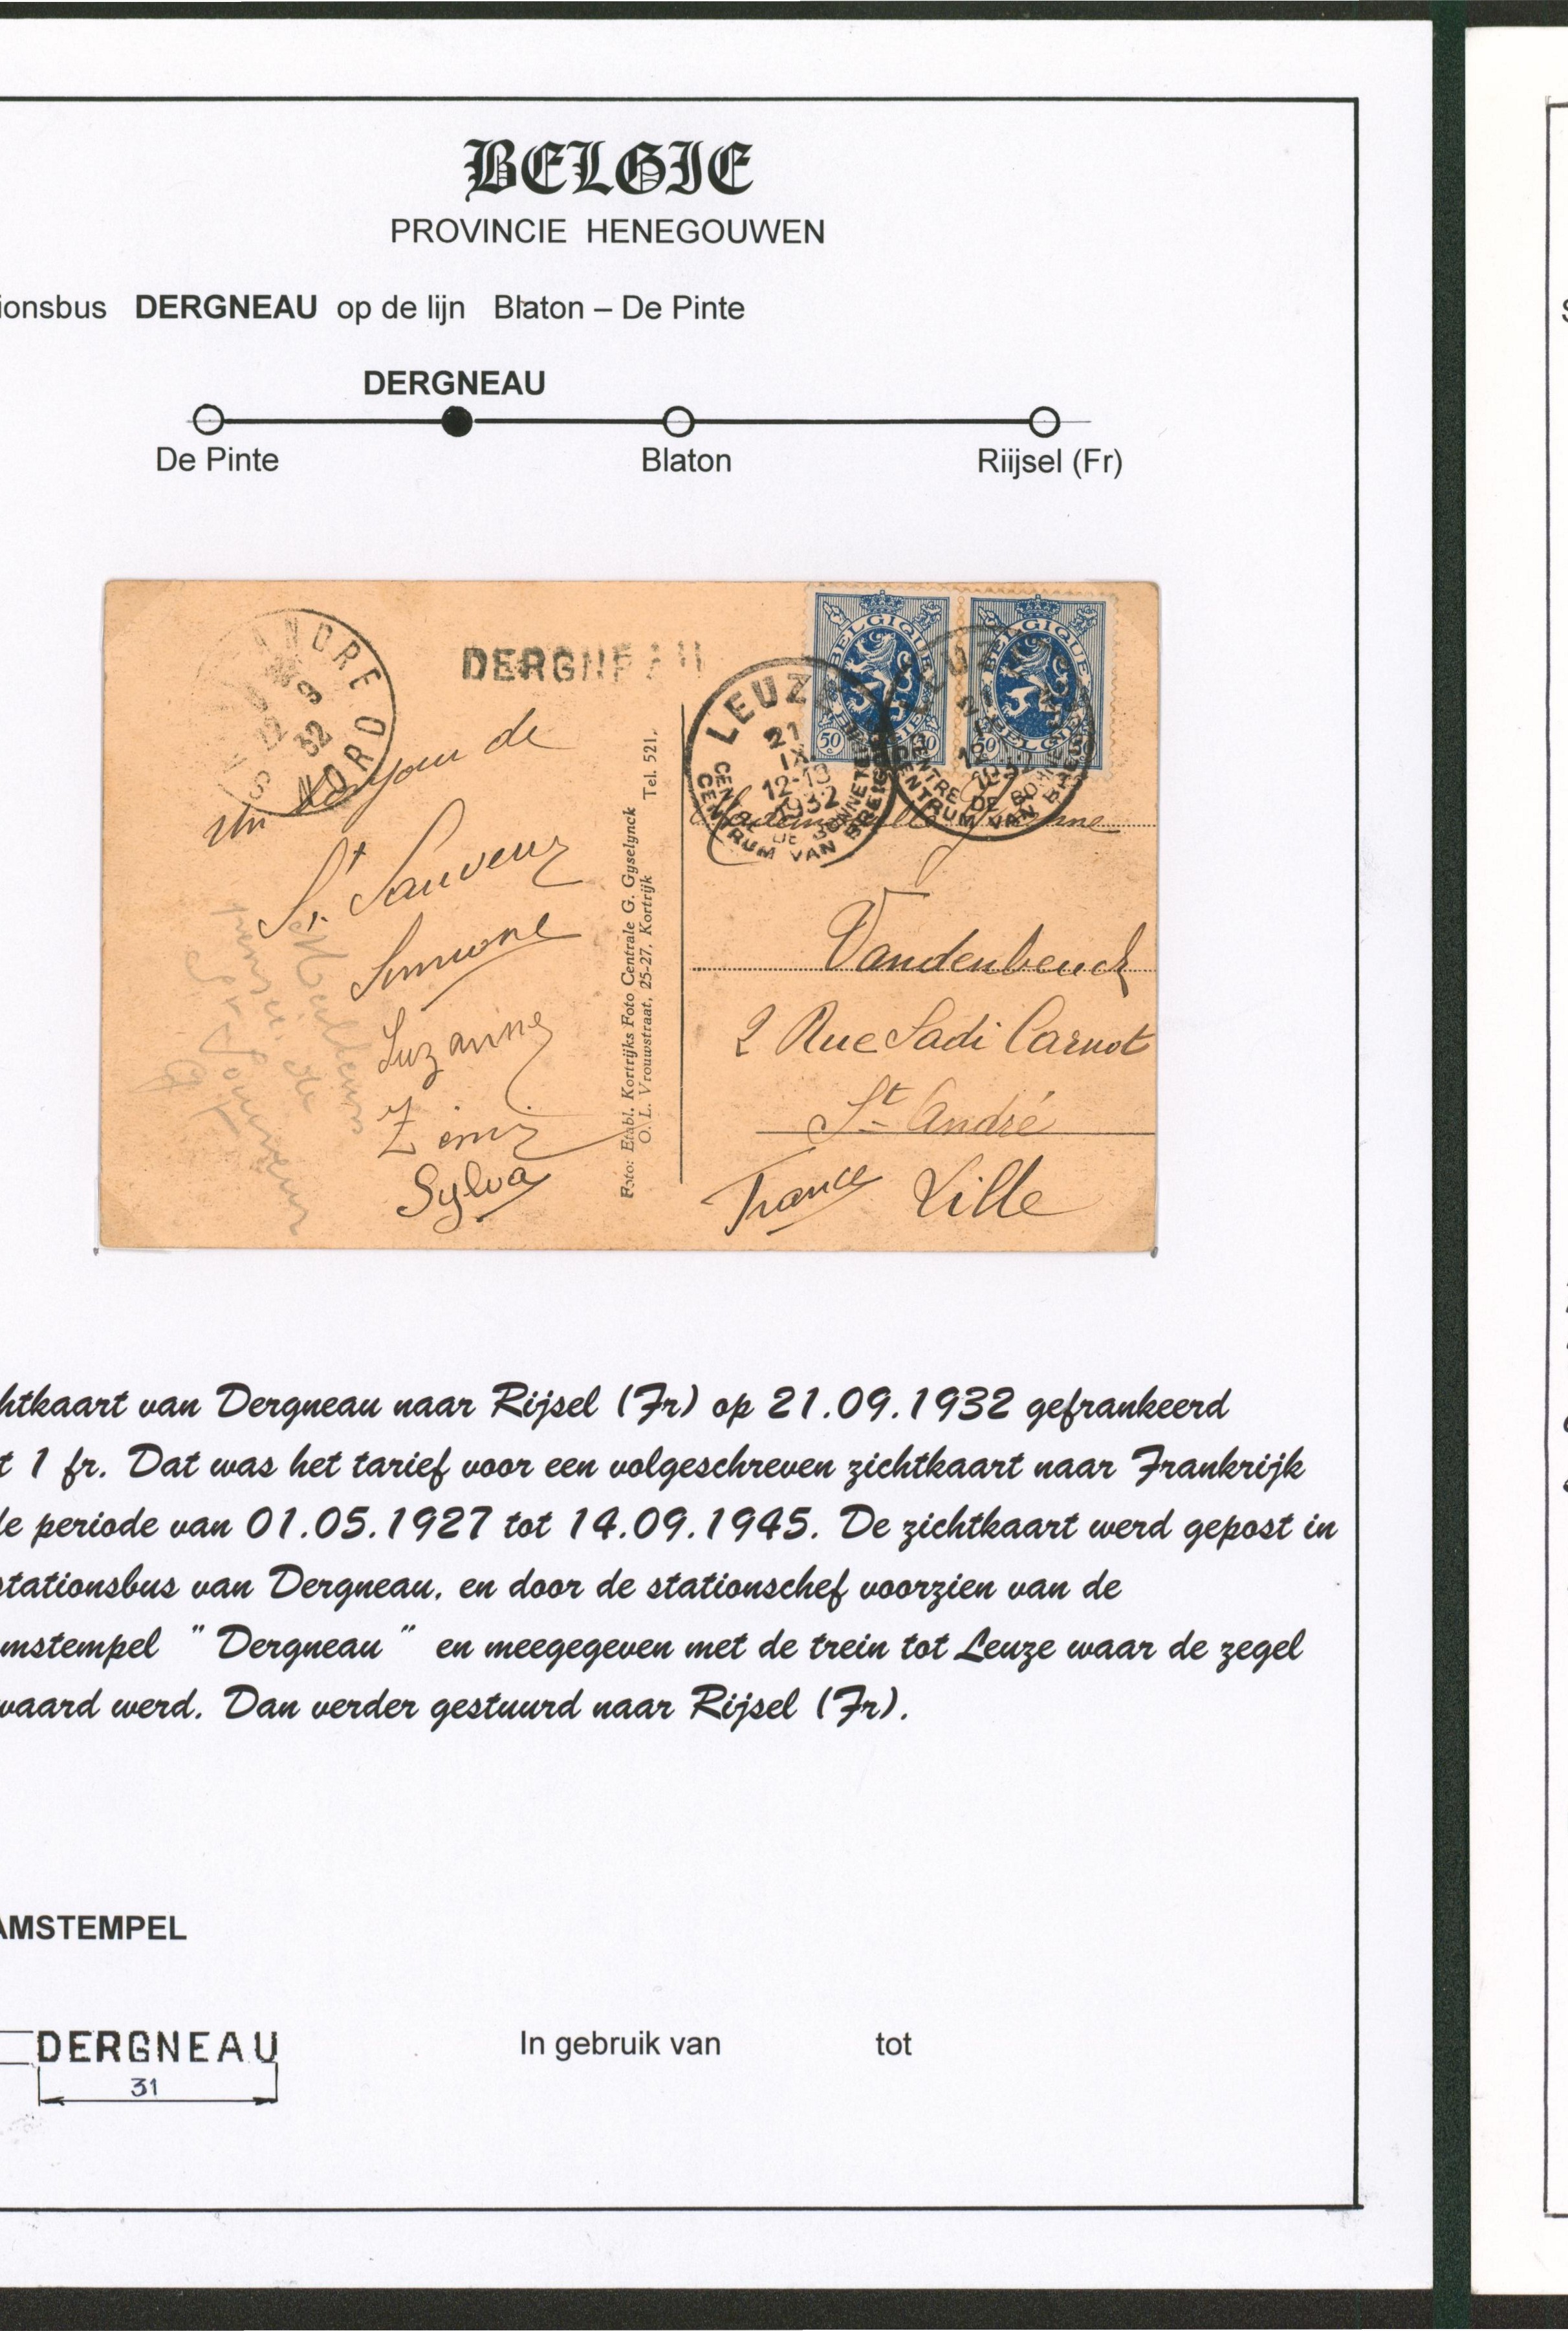 BELGIE
PROVINCIE HENEGOUWEN
ionsbus DERGNEAU op de lijn Blaton – De Pinte
DERGNEAU
De Pinte Blaton Riijsel (Fr)
DERGNEAU
ANDRE
NORD
22 9
32
BELGIQUE
BELGIE
50
BELGIQUE
BELGIE
50
LEUZE
21
IX
12-13
1932
CENTRE DE BONNETERIE
CENTRUM VAN BREIGOED
CENTRE DE BONNETERIE
CENTRUM VAN BREIGOED
Un bonjour de
St Sauveur
Simone
Suzanne
Sylva
Foto: Etabl. Kortrijks Foto Centrale G. Gyselynck
O. L. Vrouwstraat, 25-27, Kortrijk Tel. 521.
Vandenbeuck
2 Rue Sadi Carnot
St André
France Lille
htkaart van Dergneau naar Rijsel (Fr) op 21.09.1932 gefrankeerd
t 1 fr. Dat was het tarief voor een volgeschreven zichtkaart naar Frankrijk
de periode van 01.05.1927 tot 14.09.1945. De zichtkaart werd gepost in
stationsbus van Dergneau, en door de stationschef voorzien van de
mstempel " Dergneau " en meegegeven met de trein tot Leuze waar de zegel
waard werd. Dan verder gestuurd naar Rijsel (Fr).
AMSTEMPEL
DERGNEAU
31
In gebruik van tot